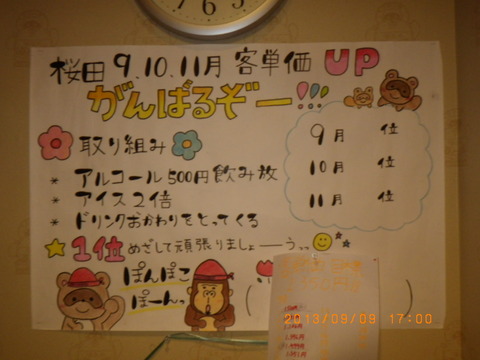 桜田 9、10、11月 客単価 UP
がんばるぞー!!!
取り組み
* アルコール500円飲み放
* アイス2倍
* ドリンクおかわりをとってくる
9月 位
10月 位
11月 位
1位めざして頑張りましょーーうっっ
ぽんぽこ
ぽーん。
2013/09/09 17:00